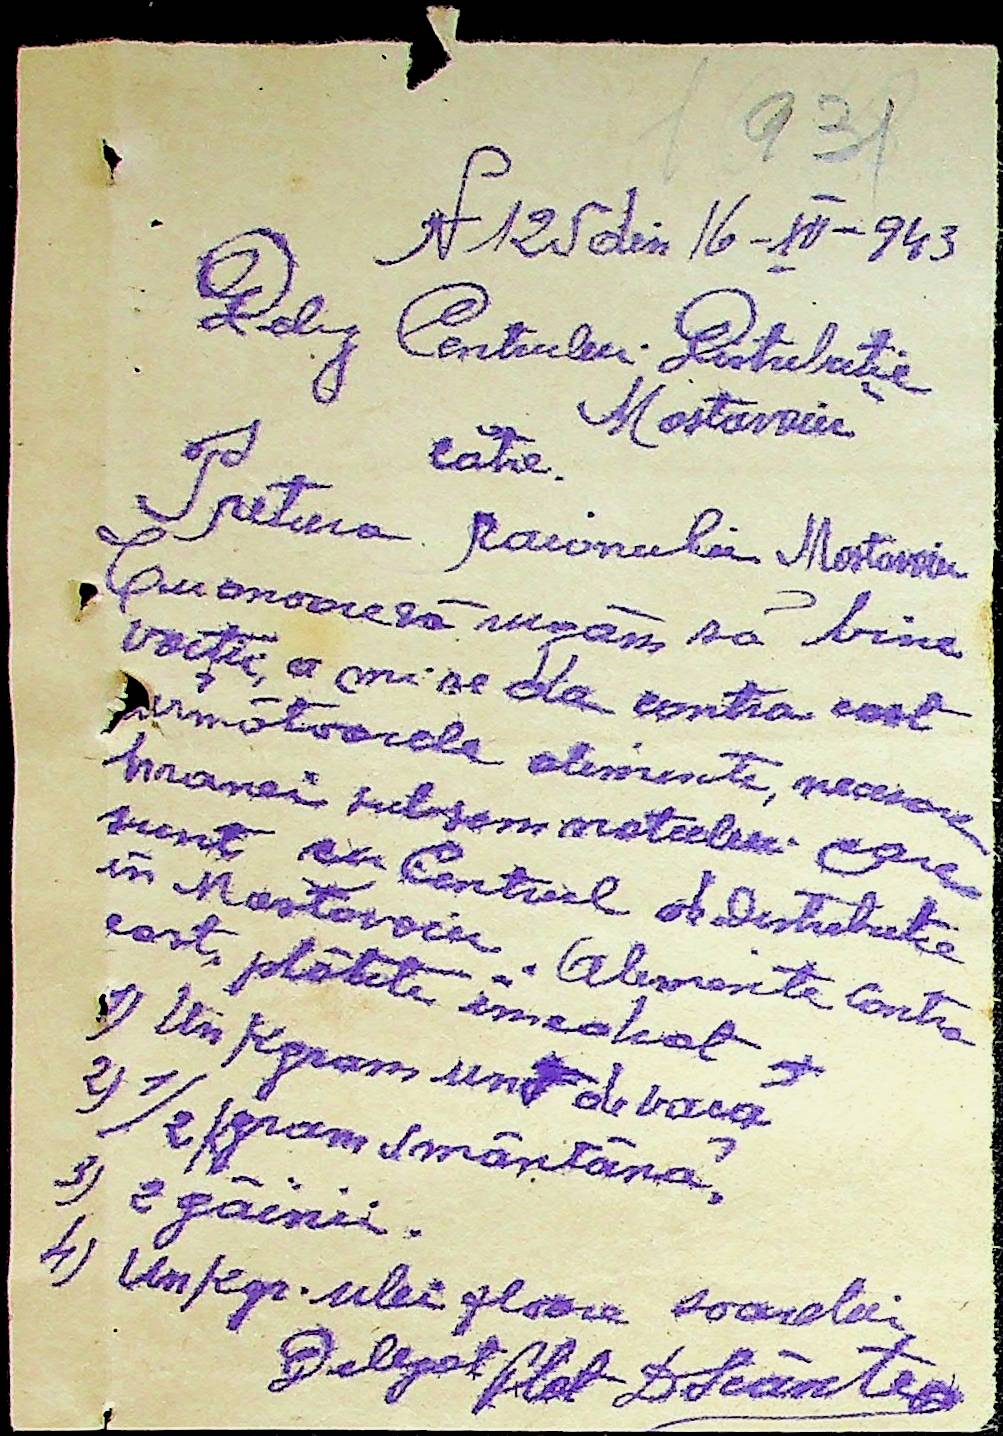 931
N 125 din 16-III-943
Deleg Centrului Distributie
Mostovoiu
cătie.
Pretura raionului Mostovoiu
Cu onoare vă rugăm să bine
voiți, a mi se da contra cost
următoarele alimente, necesare
hranei subsemnatului care
sunt cu Centrul de distributie
în Mostovoiu. Alimente contra
cost, plătite imediat
1) Un Kgram unt de vacă
2) 1/2 Kgram smântână,
3) 2 găinii.
4) Un Kgr. ulei floare soarelui,
Delegat Plot D Scântee